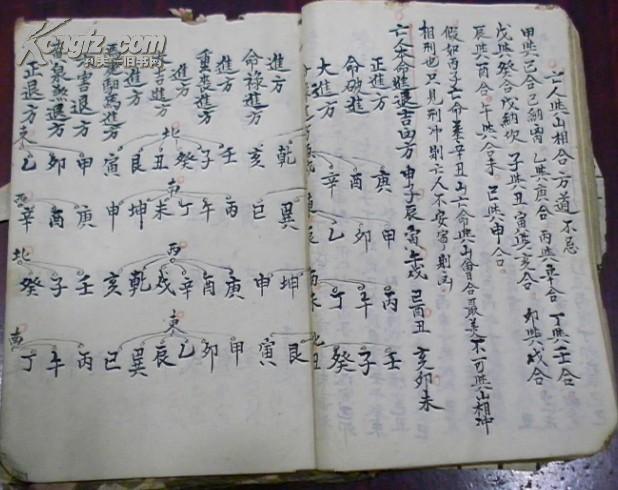 亡人與山相合方道不忌
甲與己合己納留乙與庚合丙與辛合丁與壬合
戊與癸合戊納坎子與丑寅與亥合卯與戌合
辰與酉合午與合未巳與申合
假如丙子亡命葬辛丑山亡命與山會合最美不可與山相沖
相刑也只見刑沖則亡人不安留則凶
亡人本命進退吉凶方申子辰寅午戌巳酉丑亥卯未
正進方庚甲丙壬
命破進酉卯午子
大進方辛乙丁癸
進方乾巽坤艮
命祿進方亥巳申寅
進方壬丙庚甲
重喪進方子午酉卯
進方癸丁辛乙
吉進方丑未戌辰
進方艮坤乾巽
寅申亥巳
害退方申庚壬丙
黃泉煞退方卯酉子午
正退方乙辛癸丁
東
北
南
西